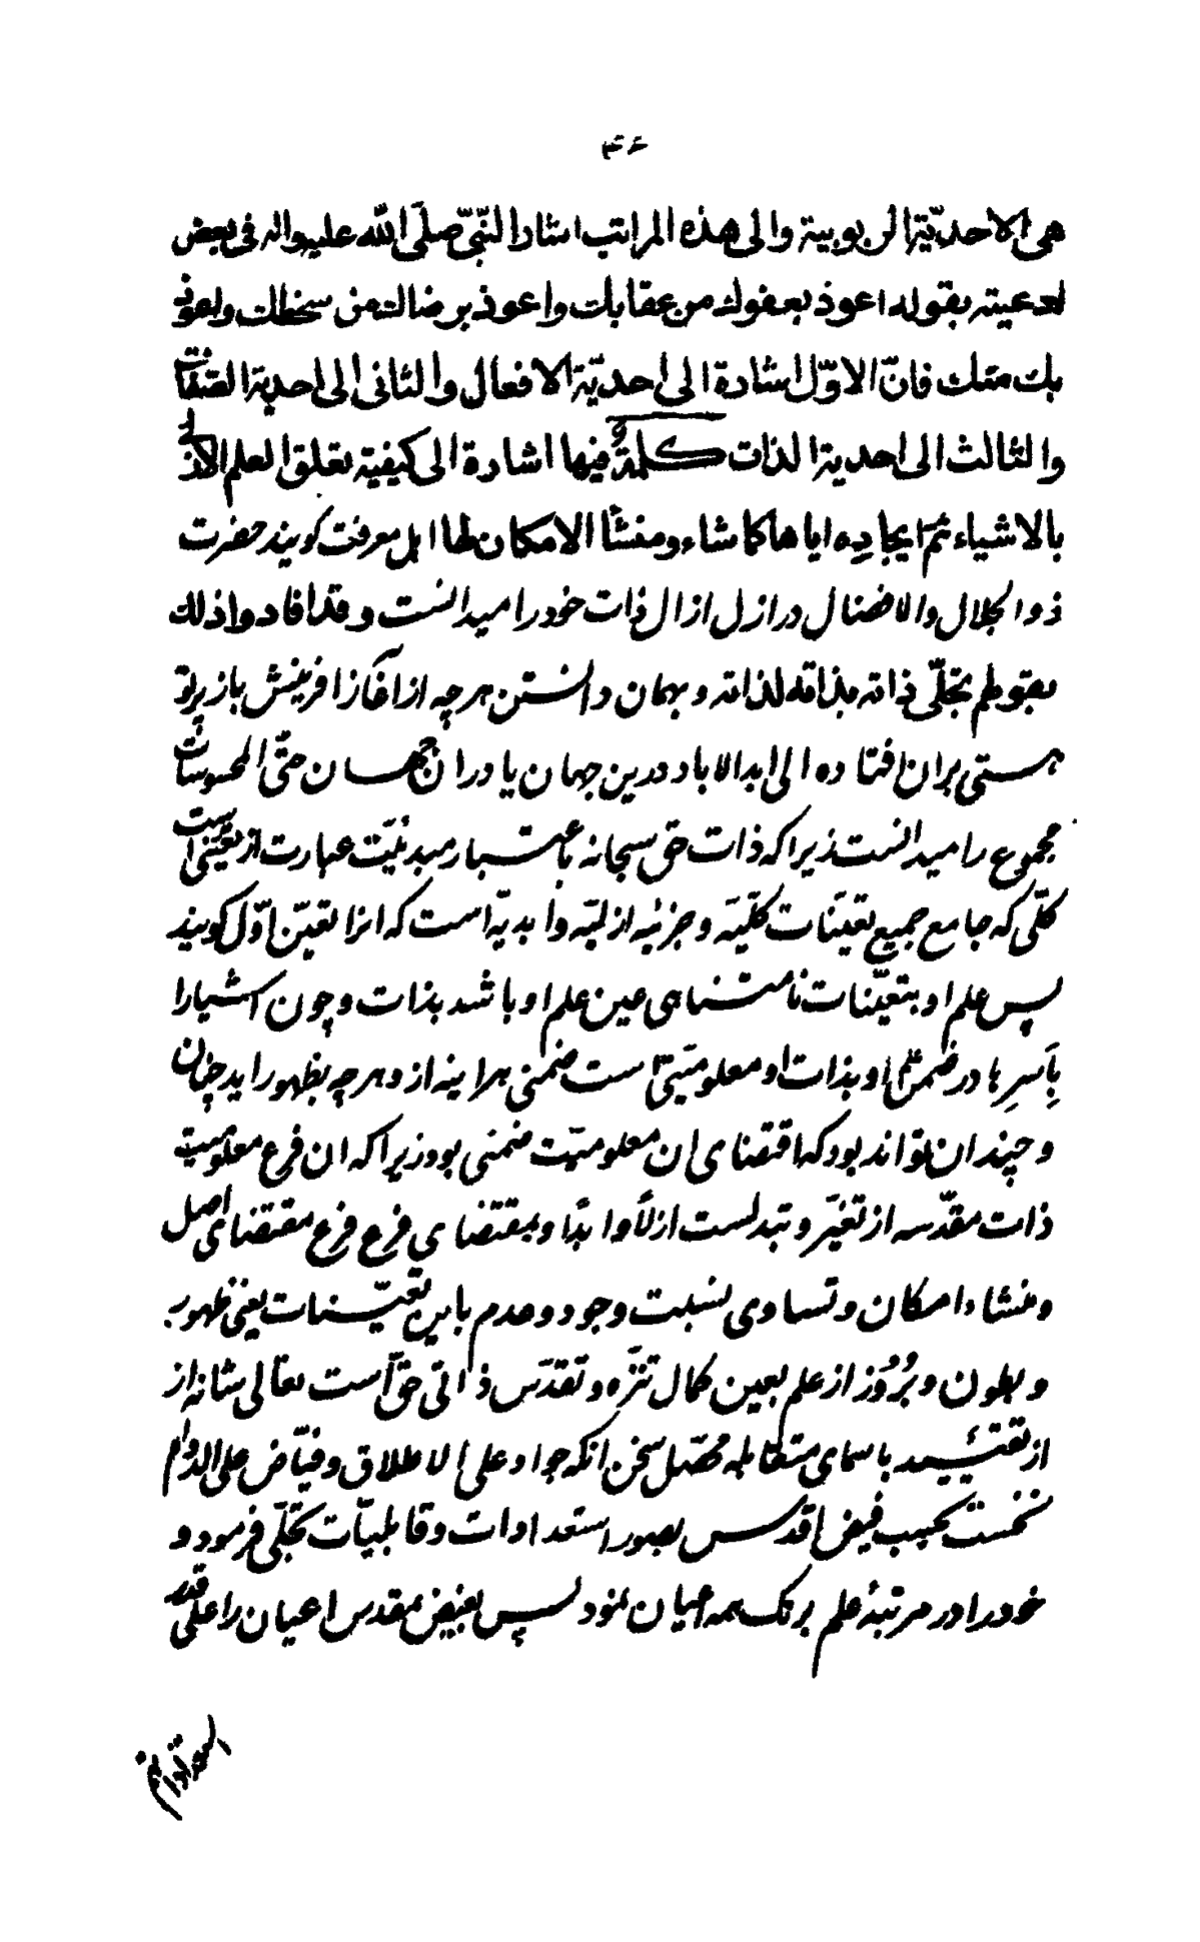 ۴۶
هی الاحدیّة الربوبیة والی هذه المراتب اشار النّبیّ صلّی الله علیه واله فی بعض
ادعیته بقوله اعوذ بعفوك من عقابك واعوذ برضاك من سخطك واعوذ
بك منك فانّ الاوّل اشارة الی احدیّة الافعال والثانی الی احدیة الصفات
والثالث الی احدیة الذات كلمةٌ فیها اشارة الی كیفیة تعلق العلم الازلی
بالاشیاء ثمّ ایجاده ایاها كما شاء ومنشأ الامكان لها اهل معرفت كویند حضرت
ذوالجلال والافضال در ازل ازال ذات خود را میدانست وقد افادوا ذلك
بقولهم تجلّی ذاته بذاته لذاته و بهمان دانستن هر چه از آغاز افرینش باز پرتو
هستی بران افتاده الی ابد الاباد درین جهان یا دران جهان حتّی المحسوسات
مجموع را میدانست زیرا كه ذات حق سبحانه باعتبار مبدئیّت عبارت از تعیّنی است
كلّی كه جامع جمیع تعیّنات كلّیّه و جزئیه ازلیّه و ابدیّه است كه انرا تعیّن اوّل كویند
پس علم او بتعیّنات نامتناهی عین علم او باشد بذات و چون اشیا را
بِاَسرِها در ضمن علم او بذات او معلومیّتی است ضمنی هراینه از و هر چه بظهور اید چنان
و چندان تواند بود كه اقتضای ان معلومیّت ضمنی بود زیرا كه ان فرع معلومیت
ذات مقدّسه از تغیّر و تبدلست ازلاً و ابدًا و بمقتضای فرع فرع مقتضای اصل
و منشاء امكان و تساوی نسبت وجود و عدم باین تعیّنات یعنی ظهور
و بطون و بُرُوز از علم بعین كمال تنزّه و تقدّس ذاتی حقّ است تعالی شانه از
از تقیید باسمای متقابله محصّل سخن انكه جواد علی الاطلاق و فیّاض علی الدوام
نخست بحسب فیض اقدس بصور استعدادات و قابلیّات تجلّی فرمود و
خود را در مرتبهٔ علم برنك همه اعیان نمود پس بفیض مقدس اعیان را علی قدر